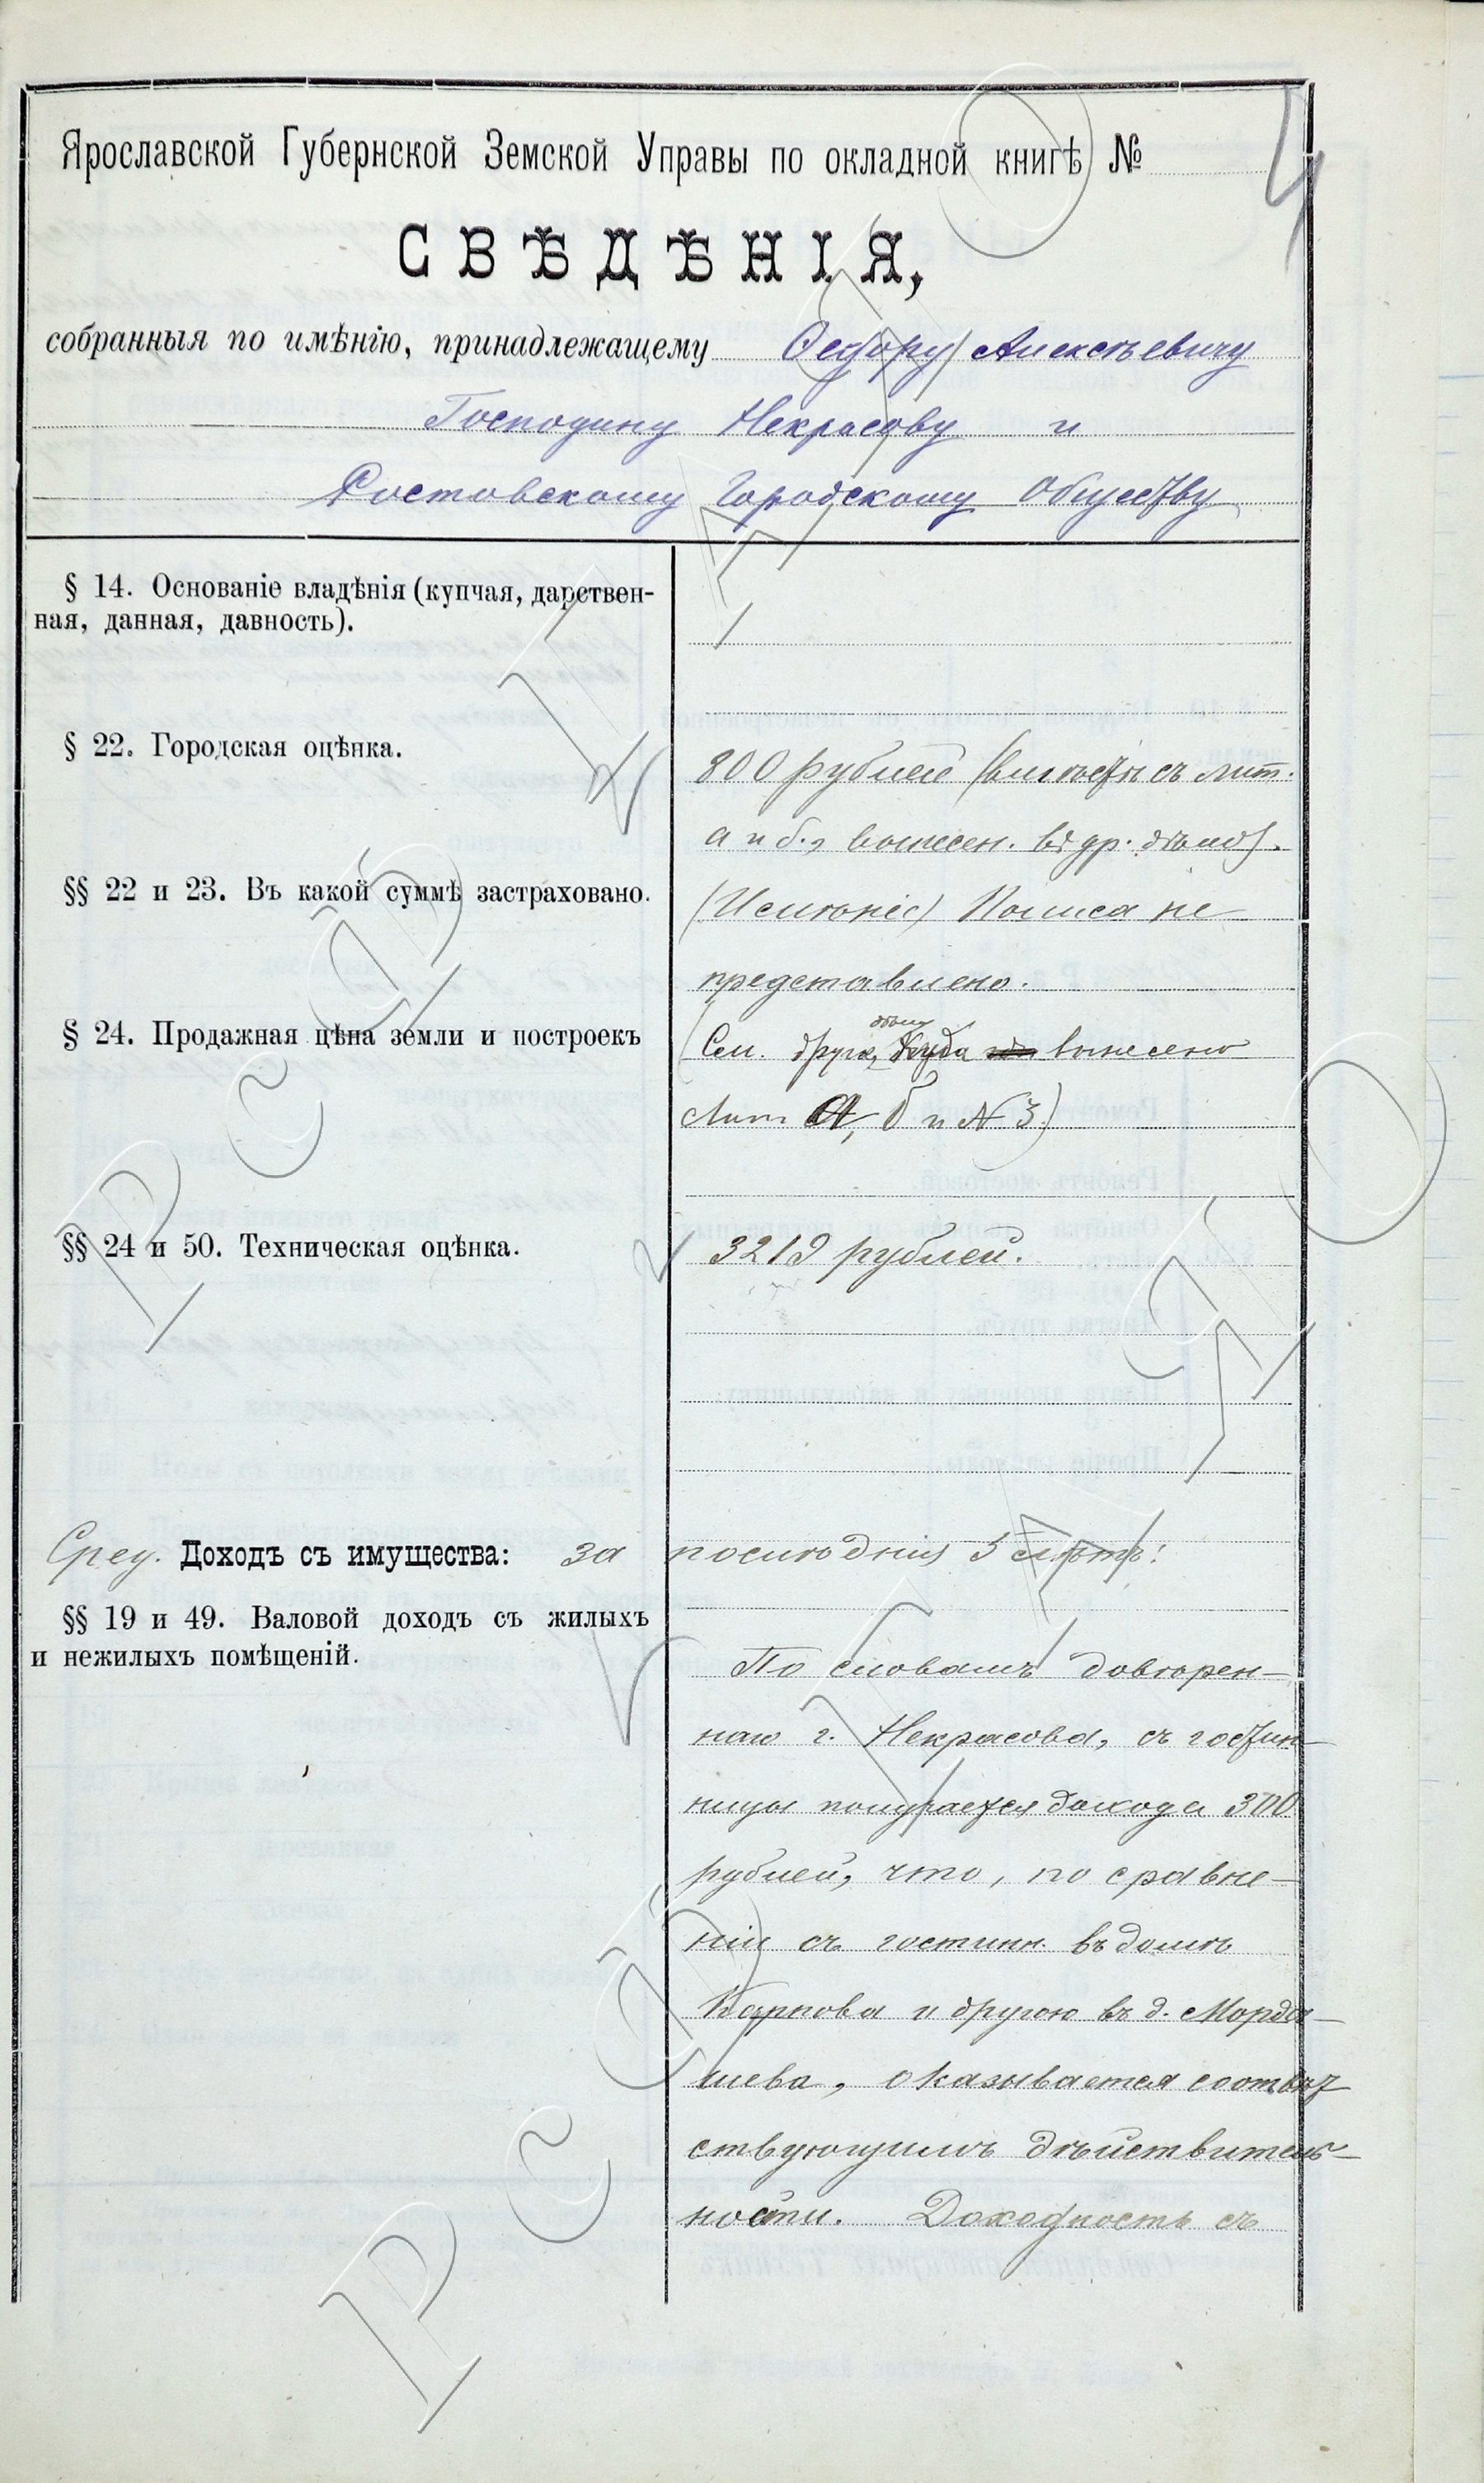 4
Ярославской Губернской Земской Управы по окладной книгѣ №
СВѢДѢНІЯ,
собранныя по имѣнію, принадлежащему Ѳедору Алексѣевичу
Господину Некрасову и
Ростовскому Городскому Обществу
§ 14. Основаніе владѣнія (купчая, дарствен-
ная, данная, давность).
§ 22. Городская оцѣнка.
800 рублей (вмѣстѣ съ лит.
а и б., вынесен. въ др. дѣло).
§§ 22 и 23. Въ какой суммѣ застраховано.
Полиса не
представлено.
§ 24. Продажная цѣна земли и построекъ
(См. друг. дѣло, куда вынесено
Лит А, б и № 3.)
§§ 24 и 50. Техническая оцѣнка.
3219 рублей.
Сред. Доходъ съ имущества: за послѣдніе 5 лѣтъ:
§§ 19 и 49. Валовой доходъ съ жилыхъ
и нежилыхъ помѣщеній.
По словамъ довѣрен-
наго г. Некрасова, съ гостин-
ницы получается дохода 300
рублей, что, по сравне-
ніи съ гостинн. въ домѣ
Карпова и другою въ д. Морды-
шева, оказывается соотвѣт
ствующимъ дѣйствитель-
ности. Доходность съ
РсфГАЯО
РсфГАЯО